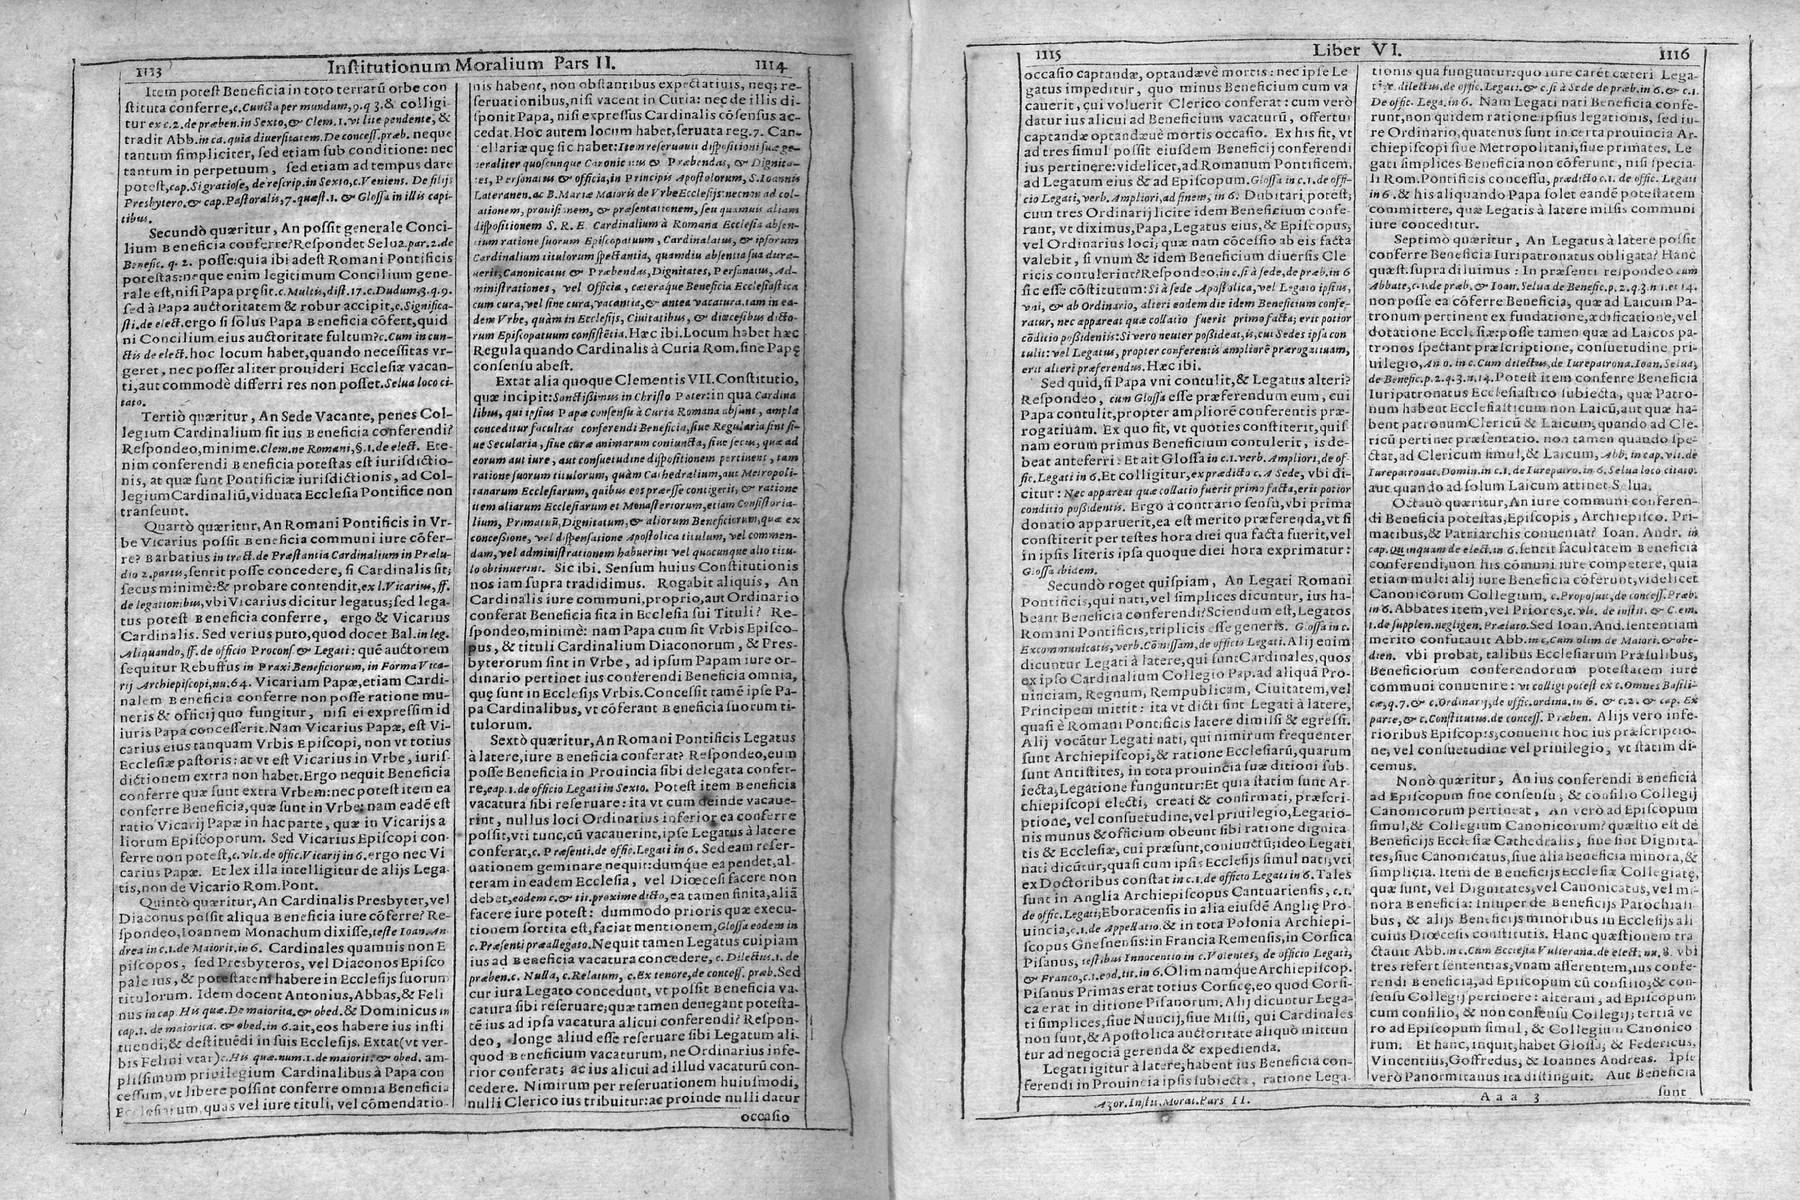 1113
Institutionum Moralium Pars II.
1114
Item potest Beneficia in toto terrarũ orbe con
stituta conferre, c. Cuncta per mundum, 9. q 3. & colligi-
tur ex c. 2. de præben. in Sexto, & Clem. 1. vt lite pendente, &
tradit Abb. in ca. quia diuersitatem. De concess. præb. neque
tantum simpliciter, sed etiam sub conditione: nec
tantum in perpetuum, sed etiam ad tempus dare
potest, cap. Si gratiose, de rescrip. in Sexto, c. Veniens. De filijs
Presbytero. & cap. Pastoralis, 7. quæst. 1. & Glossa in illis capi-
tibus.
Secundò quæritur, An possit generale Conci-
lium Beneficia conferre? Respondet Selua. par. 2. de
Benefic. q. 2. posse: quia ibi adest Romani Pontificis
potestas: neque enim legitimum Concilium gene-
rale est, nisi Papa pręsit. c. Multis, dist. 17. c. Dudum, 3. q. 9.
sed à Papa auctoritatem & robur accipit, c. Significa-
sti. de elect. ergo si solus Papa Beneficia cõfert, quid
ni Concilium eius auctoritate fultum? c. Cum in cun-
ctis de elect. hoc locum habet, quando necessitas vr-
geret, nec posset aliter prouideri Ecclesiæ vacan-
ti, aut commodè differri res non posset. Selua loco ci-
tato.
Tertiò quæritur, An Sede Vacante, penes Col-
legium Cardinalium sit ius Beneficia conferendi?
Respondeo, minime. Clem. ne Romani, §. 1. de elect. Ete-
nim conferendi Beneficia potestas est iurisdictio-
nis, at quæ sunt Pontificiæ iurisdictionis, ad Col-
legium Cardinaliũ, viduata Ecclesia Pontifice non
transeunt.
Quartò quæritur, An Romani Pontificis in Vr-
be Vicarius possit Beneficia communi iure cõfer-
re? Barbatius in tract. de Præstantia Cardinalium in Prælu-
dio 2. partis, sentit posse concedere, si Cardinalis sit;
secus minimè: & probare contendit, ex l. Vicarius, ff.
de legationibus, vbi Vicarius dicitur legatus; sed lega-
tus potest Beneficia conferre, ergo & Vicarius
Cardinalis. Sed verius puto, quod docet Bal. in leg.
Aliquando, ff. de officio Procons. & Legati: quẽ auctorem
sequitur Rebuffus in Praxi Beneficiorum, in Forma Vica-
rij Archiepiscopi, nu. 64. Vicarium Papæ, etiam Cardi-
nalem Beneficia conferre non posse ratione mu-
neris & officij quo fungitur, nisi ei expressim id
iuris Papa concesserit. Nam Vicarius Papæ, est Vi-
carius eius tanquam Vrbis Episcopi, non vt totius
Ecclesiæ pastoris: at vt est Vicarius in Vrbe, iuris-
dictionem extra non habet. Ergo nequit Beneficia
conferre quæ sunt extra Vrbem: nec potest item ea
conferre Beneficia, quæ sunt in Vrbe; nam eadẽ est
ratio Vicarij Papæ in hac parte, quæ in Vicarijs a
liorum Episcoporum. Sed Vicarius Episcopi con-
ferre non potest, c. vlt. de offic. Vicarij in 6. ergo nec Vi
carius Papæ. Et lex illa intelligitur de alijs Lega-
tis, non de Vicario Rom. Pont.
Quintò quæritur, An Cardinalis Presbyter, vel
Diaconus possit aliqua Beneficia iure cõferre? Re-
spondeo, Ioannem Monachum dixisse, teste Ioan. An
drea in c. 1. de Maiorit. in 6. Cardinales quamuis non E
piscopos, sed Presbyteros, vel Diaconos Episco
pale ius, & potestatem habere in Ecclesijs suorum
titulorum. Idem docent Antonius, Abbas, & Feli
nus in cap. His quæ. De maiorita. & obed. & Dominicus in
cap. 1. de maiorita. & obed. in 6. ait, eos habere ius insti
tuendi, & destituẽdi in suis Ecclesijs. Extat (vt ver-
bis Felini vtar) c. His quæ. num. 1. de maiorit: & obed. am-
plissimum priuilegium Cardinalibus à Papa con
cessum, vt libere possint conferre omnia Beneficia
Ecclesiarum, quas vel iure tituli, vel cõmendatio-
nis habent, non obstantibus expectatiuis, neq; re-
seruationibus, nisi vacent in Curia: nec de illis di-
sponit Papa, nisi expressus Cardinalis cõsensus ac-
cedat. Hoc autem locum habet, seruata reg. 7. Can-
cellariæ quę sic habet: Item reseruauit dispositioni suæ ge-
neraliter quoscunque Canonicatus & Præbendas, & Dignita-
tes, Personatus & officia, in Principis Apostolorum, S. Ioannis
Lateranen. ac B. Mariæ Maioris de Vrbe Ecclesijs: necnon ad col-
lationem, prouisionem, & præsentationem, seu quamuis aliam
dispositionem S. R. E. Cardinalium à Romana Ecclesia absen-
tium ratione suorum Episcopatuum, Cardinalatus, & ipsorum
Cardinalium titulorum spectantia, quamdiu absentia sua dura-
uerit, Canonicatus & Præbendas, Dignitates, Personatus, Ad-
ministrationes, vel Officia, cæteraque Beneficia Ecclesiastica
cum cura, vel sine cura, vacantia, & antea vacatura, tam in ea-
dem Vrbe, quàm in Ecclesijs, Ciuitatibus, & diœcesibus dicto-
rum Episcopatuum consistẽtia. Hæc ibi. Locum habet hæc
Regula quando Cardinalis à Curia Rom. sine Papę
consensu abest.
Extat alia quoque Clementis VII. Constitutio,
quæ incipit: Sanctissimus in Christo Pater: in qua Cardina
libus, qui ipsius Papæ consensu à Curia Romana absunt, ampla
conceditur facultas conferendi Beneficia, siue Regularia sint si-
ue Secularia, siue curæ animarum coniuncta, siue secus, quæ ad
eorum aut iure, aut consuetudine dispositionem pertinent, tam
ratione suorum titulorum, quàm Cathedralium, aut Metropoli-
tanarum Ecclesiarum, quibus eos præesse contigerit, & ratione
item aliarum Ecclesiarum et Monasteriorum, etiam Consistoria-
lium, Primatuũ, Dignitatum, & aliorum Beneficiorum, quæ ex
concessione, vel dispensatione Apostolica titulum, vel commen-
dam, vel administrationem habuerint vel quocunque alio titu-
lo obtinuerint. Sic ibi. Sensum huius Constitutionis
nos iam supra tradidimus. Rogabit aliquis, An
Cardinalis iure communi, proprio, aut Ordinario
conferat Beneficia sita in Ecclesia sui Tituli? Re-
spondeo, minimè: nam Papa cum sit Vrbis Episco-
pus, & tituli Cardinalium Diaconorum, & Pres-
byterorum sint in Vrbe, ad ipsum Papam iure or-
dinario pertinet ius conferendi Beneficia omnia,
quę sunt in Ecclesijs Vrbis. Concessit tamẽ ipse Pa-
pa Cardinalibus, vt cõferant Beneficia suorum ti-
tulorum.
Sextò quæritur, An Romani Pontificis Legatus
à latere, iure Beneficia conferat? Respondeo, eum
posse Beneficia in Prouincia sibi delegata confer-
re, cap. 1. de officio Legati in Sexto. Potest item Beneficia
vacatura sibi reseruare: ita vt cum deinde vacaue-
rint, nullus loci Ordinarius inferior ea conferre
possit, vti tunc, cũ vacauerint, ipse Legatus à latere
conferat, c. Præsenti. de offic. Legati in 6. Sed eam reser-
uationem geminare nequit: dumque ea pendet, al-
teram in eadem Ecclesia, vel Diœcesi facere non
debet, eodem c. & tit. proxime dicto, ea tamen finita, aliã
facere iure potest: dummodo prioris quæ execu-
tionem sortita est, faciat mentionem, Glossa eodem in
c. Præsenti præallegato. Nequit tamen Legatus cuipiam
ius ad Beneficia vacatura concedere, c. Dilectus. 1. de
præben. c. Nulla, c. Relatum, c. Ex tenore, de concess. præb. Sed
cur iura Legato concedunt, vt possit Beneficia va-
catura sibi reseruare; quæ tamen denegant potesta-
tẽ ius ad ipsa vacatura alicui conferendi? Respon-
deo, longe aliud esse reseruare sibi Legatum ali-
quod Beneficium vacaturum, ne Ordinarius infe-
rior conferat; ac ius alicui ad illud vacaturũ con-
cedere. Nimirum per reseruationem huiusmodi,
nulli Clerico ius tribuitur: ac proinde nulli datur
occasio
1115
Liber VI.
1116
occasio captandæ, optandævè mortis: nec ipse Le
gatus impeditur, quo minus Beneficium cum va
cauerit, cui voluerit Clerico conferat: cum verò
datur ius alicui ad Beneficium vacaturũ, offertur
captandæ optandæuè mortis occasio. Ex his fit, vt
ad tres simul possit eiusdem Beneficij conferendi
ius pertinere: videlicet, ad Romanum Pontificem.
ad Legatum eius & ad Episcopum. Glossa in c. 1. de offi-
cio Legati, verb. Ampliori, ad finem, in 6. Dubitari, potest;
cum tres Ordinarij licite idem Beneficium confe-
rant, vt diximus, Papa, Legatus eius, & Episcopus;
vel Ordinarius loci; quæ nam cõcessio ab eis facta
valebit, si vnum & idem Beneficium diuersis Cle
ricis contulerint? Respondeo, in c. si à sede, de præb. in 6
sic esse cõstitutum: Si à sede Apostolica, vel Legato ipsius,
vni, & ab Ordinario, alteri eodem die idem Beneficium confe-
ratur, nec appareat quæ collatio fuerit primo facta; erit potior
cõditio possidentis: Si vero neuter possideat, is, cui Sedes ipsa con
tulit: vel Legatus, propter conferentis ampliorẽ prærogatiuam,
erit alteri præferendus. Hæc ibi.
Sed quid, si Papa vni contulit, & Legatus alteri?
Respondeo, cum Glossa esse præferendum eum, cui
Papa contulit, propter ampliorẽ conferentis præ-
rogatiuam. Ex quo fit, vt quoties constiterit, quis
nam eorum primus Beneficium contulerit, is de-
beat anteferri: Et ait Glossa in c. 1. verb. Ampliori, de of-
fic. Legati in 6. Et colligitur, ex prædicto c. A Sede, vbi di-
citur: Nec appareat quæ collatio fuerit primo facta, erit potior
conditio possidentis. Ergò à contrario sensu, vbi prima
donatio apparuerit, ea est merito præferenda, vt si
constiterit per testes hora diei qua facta fuerit, vel
in ipsis literis ipsa quoque diei hora exprimatur:
Glossa ibidem.
Secundò roget quispiam, An Legati Romani
Pontificis, qui nati, vel simplices dicuntur, ius ha-
beant Beneficia conferendi? Sciendum est, Legatos
Romani Pontificis, triplicis esse generis. Glossa in c.
Excommunicatis, verb. Cõmissam, de officio Legati. Alij enim
dicuntur Legati à latere, qui sunt Cardinales, quos
ex ipso Cardinalium Collegio Pap. ad aliquã Pro-
uinciam, Regnum, Rempublicam, Ciuitatem, vel
Principem mittit: ita vt dicti sint Legati à latere,
quasi è Romani Pontificis latere dimissi & egressi.
Alij vocãtur Legati nati, qui nimirum frequenter
sunt Archiepiscopi, & ratione Ecclesiarũ, quarum
sunt Antistites, in tota prouincia suæ ditioni sub-
iecta, Legatione funguntur: Et quia statim sunt Ar-
chiepiscopi electi, creati & confirmati, præscri-
ptione, vel consuetudine, vel priuilegio, Legatio-
nis munus & officium obeunt sibi ratione dignita
tis & Ecclesiæ, cui præsunt, coniunctũ; ideo Legati
nati dicũtur, quasi cum ipsis Ecclesijs simul nati, vti
ex Doctoribus constat in c. 1. de officio Legati in 6. Tales
sunt in Anglia Archiepiscopus Cantuariensis, c. 1.
de offic. Legati; Eboracensis in alia eiusdẽ Anglię Pro-
uincia, c. 1. de Appellatio. & in tota Polonia Archiepi-
scopus Gnesnensis: in Francia Remensis, in Corsica
Pisanus, testibus Innocentio in c. Volentes, de officio Legati,
& Franco, c. 1. eod. tit. in 6. Olim namque Archiepiscop.
Pisanus Primas erat totius Corsicę, eo quod Corsi-
ca erat in ditione Pisanorum. Alij dicuntur Lega-
ti simplices, siue Nuncij, siue Missi, qui Cardinales
non sunt, & Apostolica auctoritate aliquò mittun
tur ad negocia gerenda & expedienda.
Legati igitur à latere, habent ius Beneficia con-
ferendi in Prouincia ipsis subiecta, ratione Lega-
Azor. Instit. Moral. Pars II.
tionis qua funguntur: quo iure carẽt cæteri Lega-
ti, c. dilectus, de offic. Legati. & c. si à Sede de præb. in 6. & c. 1.
De offic. Lega. in 6. Nam Legati nati Beneficia confe-
runt, non quidem ratione ipsius legationis, sed iu-
re Ordinario, quatenus sunt in certa prouincia Ar-
chiepiscopi siue Metropolitani, siue primates. Le
gati simplices Beneficia non cõferunt, nisi specia-
li Rom. Pontificis concessu, prædicto c. 1. de offic. Legati
in 6. & his aliquando Papa solet eandẽ potestatem
committere, quæ Legatis à latere missis communi
iure conceditur.
Septimo quæritur, An Legatus à latere possit
conferre Beneficia Iuripatronatus obligata? Hanc
quæst. supra diluimus: In præsenti respondeo cum
Abbate, c. 1. de præb. & Ioan. Selua de Benefic. p. 2. q. 3. n 1. et 14.
non posse ea cõferre Beneficia, quæ ad Laicum Pa-
tronum pertinent ex fundatione, ædificatione, vel
dotatione Ecclesiæ: posse tamen quæ ad Laicos pa-
tronos spectant præscriptione, consuetudine pri-
uilegio, An o. in c. Cum dilectus, de Iurepatrona. Ioan. Selua;
de Benefic. p. 2. q. 3. n. 14. Potest item conferre Beneficia
Iuripatronatus Ecclesiastico subiecta, quæ Patro-
num habent Ecclesiasticum non Laicũ, aut quæ ha-
bent patronum Clericũ & Laicum, quando ad Cle-
ricũ pertinet præsentatio. non tamen quando spe-
ctat, ad Clericum simul, & Laicum, Abb. in cap. vlt. de
Iurepatronat. Domin. in c. 1. de Iurepatro. in 6. Selua loco citato.
aut quando ad solum Laicum attinet Selua.
Octauò quæritur, An iure communi conferen-
di Beneficia potestas, Episcopis, Archiepisco. Pri-
matibus, & Patriarchis conueniat? Ioan. Andr. in
cap. Quinquam de elect. in 6. sentit facultatem Beneficia
conferendi, non his cõmuni iure competere, quia
etiam multi alij iure Beneficia cõferunt, videlicet
Canonicorum Collegium, c. Proposuit, de concess. Præb.
in 6. Abbates item, vel Priores, c. vlt. de instit. & Clem.
1. de supplen. negligen. Prælato. Sed Ioan. And. sententiam
merito confutauit Abb. in c. Cum olim de Maiori. & obe-
dien. vbi probat, talibus Ecclesiarum Præsulibus,
Beneficiorum conferendorum potestatem iure
communi conuenire: vt colligi potest ex c. Omnes Basili-
cæ, q. 7. & c. Ordinarij, de offic. ordina. in 6. & c. 2. & cap. Ex
parte, & c. Constitutus. de concess. Præben. Alijs vero infe-
rioribus Episcopis, conuenit hoc ius præscriptio-
ne, vel consuetudine vel priuilegio, vt statim di-
cemus.
Nonò quæritur, An ius conferendi Beneficia
ad Episcopum sine consensu, & consilio Collegij
Canonicorum pertineat, An verò ad Episcopum
simul, & Collegium Canonicorum? quæstio est de
Beneficijs Ecclesiæ Cathedralis, siue sint Dignita-
tes, siue Canonicatus, siue alia beneficia minora, &
simplicia. Item de Beneficijs Ecclesiæ Collegiatę,
quæ sunt, vel Dignitates, vel Canonicatus, vel mi-
nora Beneficia: insuper de Beneficijs Parochiali-
bus, & alijs Beneficijs minoribus in Ecclesijs ali
cuius Diœcesis constitutis. Hanc quæstionem tra
ctauit Abb. in c. Cum Ecclesia Vulterana. de elect; nu. 8. vbi
tres refert sententias; vnam asserentem, ius confe-
rendi Beneficia, ad Episcopum cũ consilio, & con-
sensu Collegij pertinere: alteram, ad Episcopum
cum consilio, & non consensu Collegij; tertiã ve
ro ad Episcopum simul, & Collegium Canonico
rum. Et hanc, inquit, habet Glossa; & Federicus,
Vincentius, Goffredus, & Ioannes Andreas. Ipse
verò Panormitanus ita distinguit. Aut Beneficia
Aaa 3
sunt